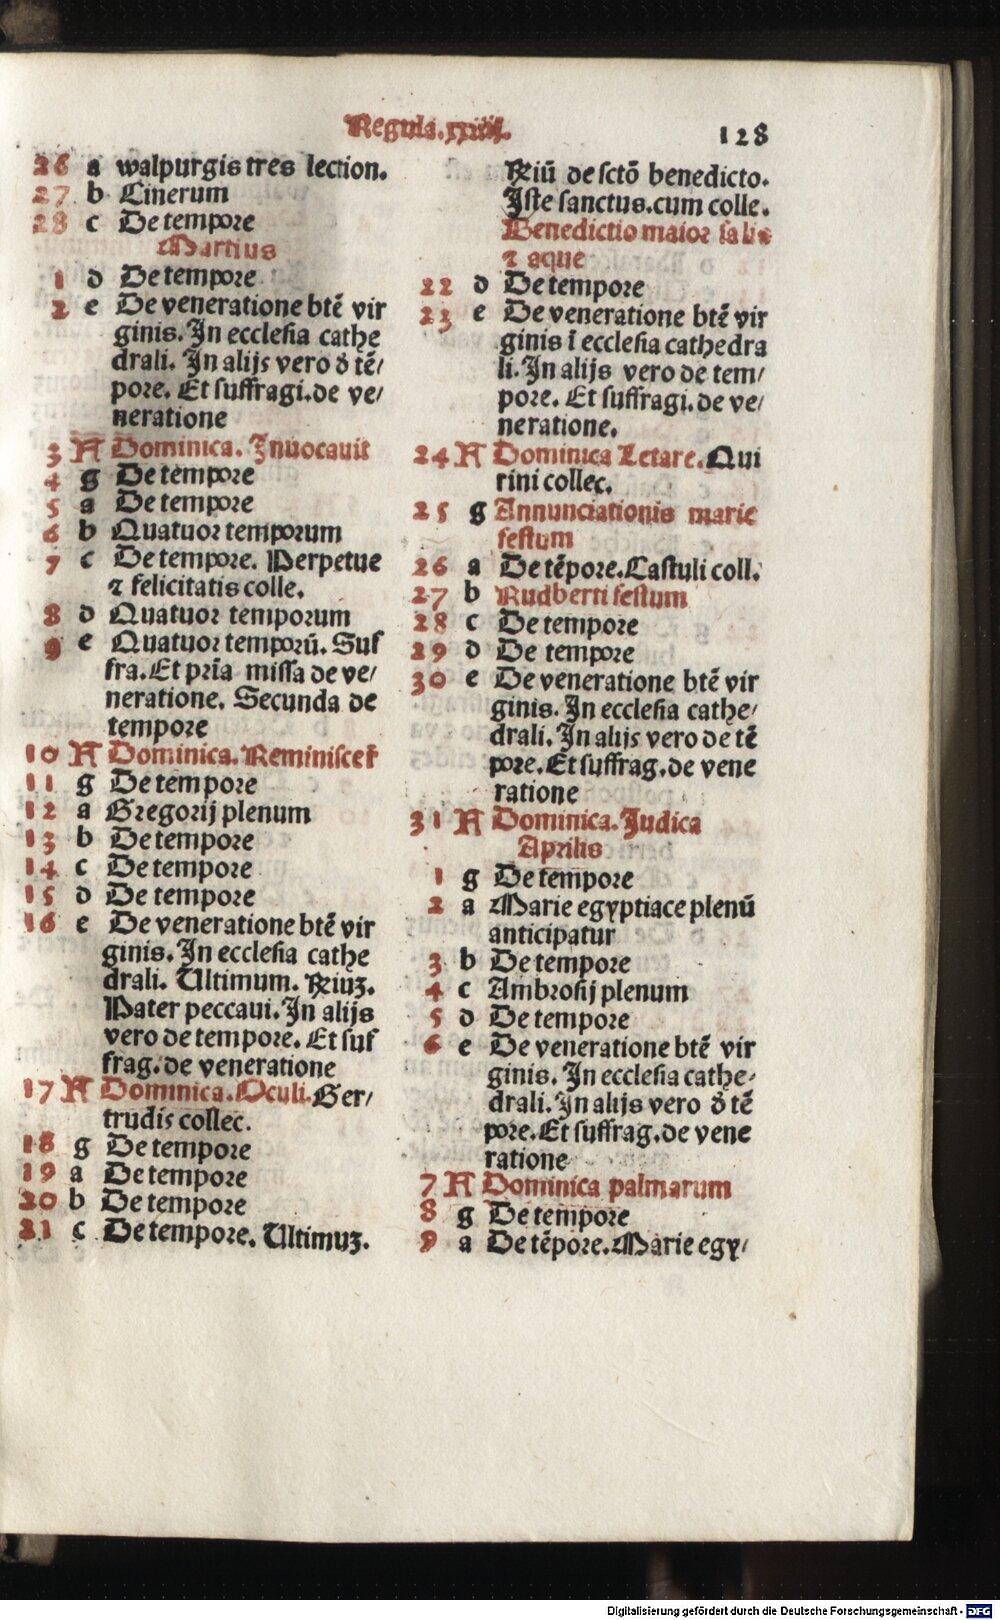 Regula.xxiiij.
128
26 a walpurgis tres lection.
27 b Cinerum
28 c De tempore
Martius
1 d De tempore
2 e De veneratione btē vir
ginis. In ecclesia cathe
drali. In alijs vero ð tē/
pore. Et suffragi.de ve/
neratione
3 A Dominica. Inuocauit
4 g De tempore
5 a De tempore
6 b Quatuor temporum
7 c De tempore. Perpetue
⁊ felicitatis colle.
8 d Quatuor temporum
9 e Quatuor temporū. Suf
fra. Et prīa missa de ve/
neratione. Secunda de
tempore
10 A Dominica. Reminiscer̄
11 g De tempore
12 a Gregorij plenum
13 b De tempore
14 c De tempore
15 d De tempore
16 e De veneratione btē vir
ginis. In ecclesia cathe
drali. Ultimum. ꝶiuꝫ.
Pater peccaui. In alijs
vero de tempore. Et suf
frag. de veneratione
17 A Dominica. Oculi. Ger/
trudis collec.
18 g De tempore
19 a De tempore
20 b De tempore
21 c De tempore. Ultimuꝫ.
ꝶiū de sctō benedicto.
Iste sanctus.cum colle.
Benedictio maior salis
⁊ aque
22 d De tempore
23 e De veneratione btē vir
ginis ī ecclesia cathedra
li. In alijs vero de tem/
pore. Et suffragi. de ve/
neratione.
24 A Dominica Letare. Qui
rini collec.
25 g Annunciationis marie
festum
26 a De tēpore. Castuli coll.
27 b Rudberti festum
28 c De tempore
29 d De tempore
30 e De veneratione btē vir
ginis. In ecclesia cathe/
drali. In alijs vero de tē
pore. Et suffrag. de vene
ratione
31 A Dominica. Iudica
Aprilis
1 g De tempore
2 a Marie egyptiace plenū
anticipatur
3 b De tempore
4 c Ambrosij plenum
5 d De tempore
6 e De veneratione btē vir
ginis. In ecclesia cathe/
drali. In alijs vero ð tē
pore. Et suffrag. de vene
ratione
7 A Dominica palmarum
8 g De tempore
9 a De tēpore. Marie egy/
Digitalisierung gefördert durch die Deutsche Forschungsgemeinschaft - DFG